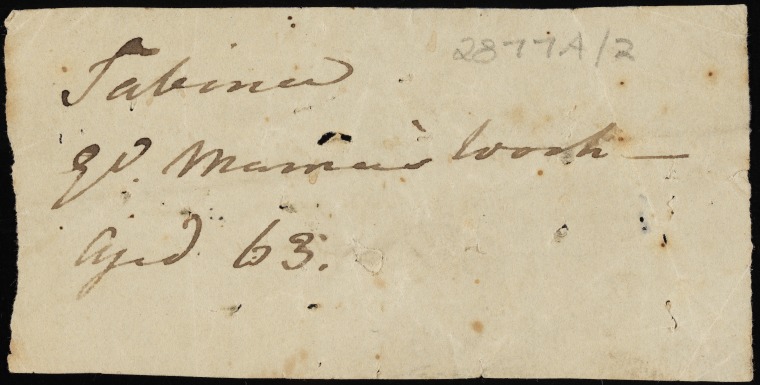 2877A/2
Tabinee
Gd. Mamma's Work —
Aged 63.